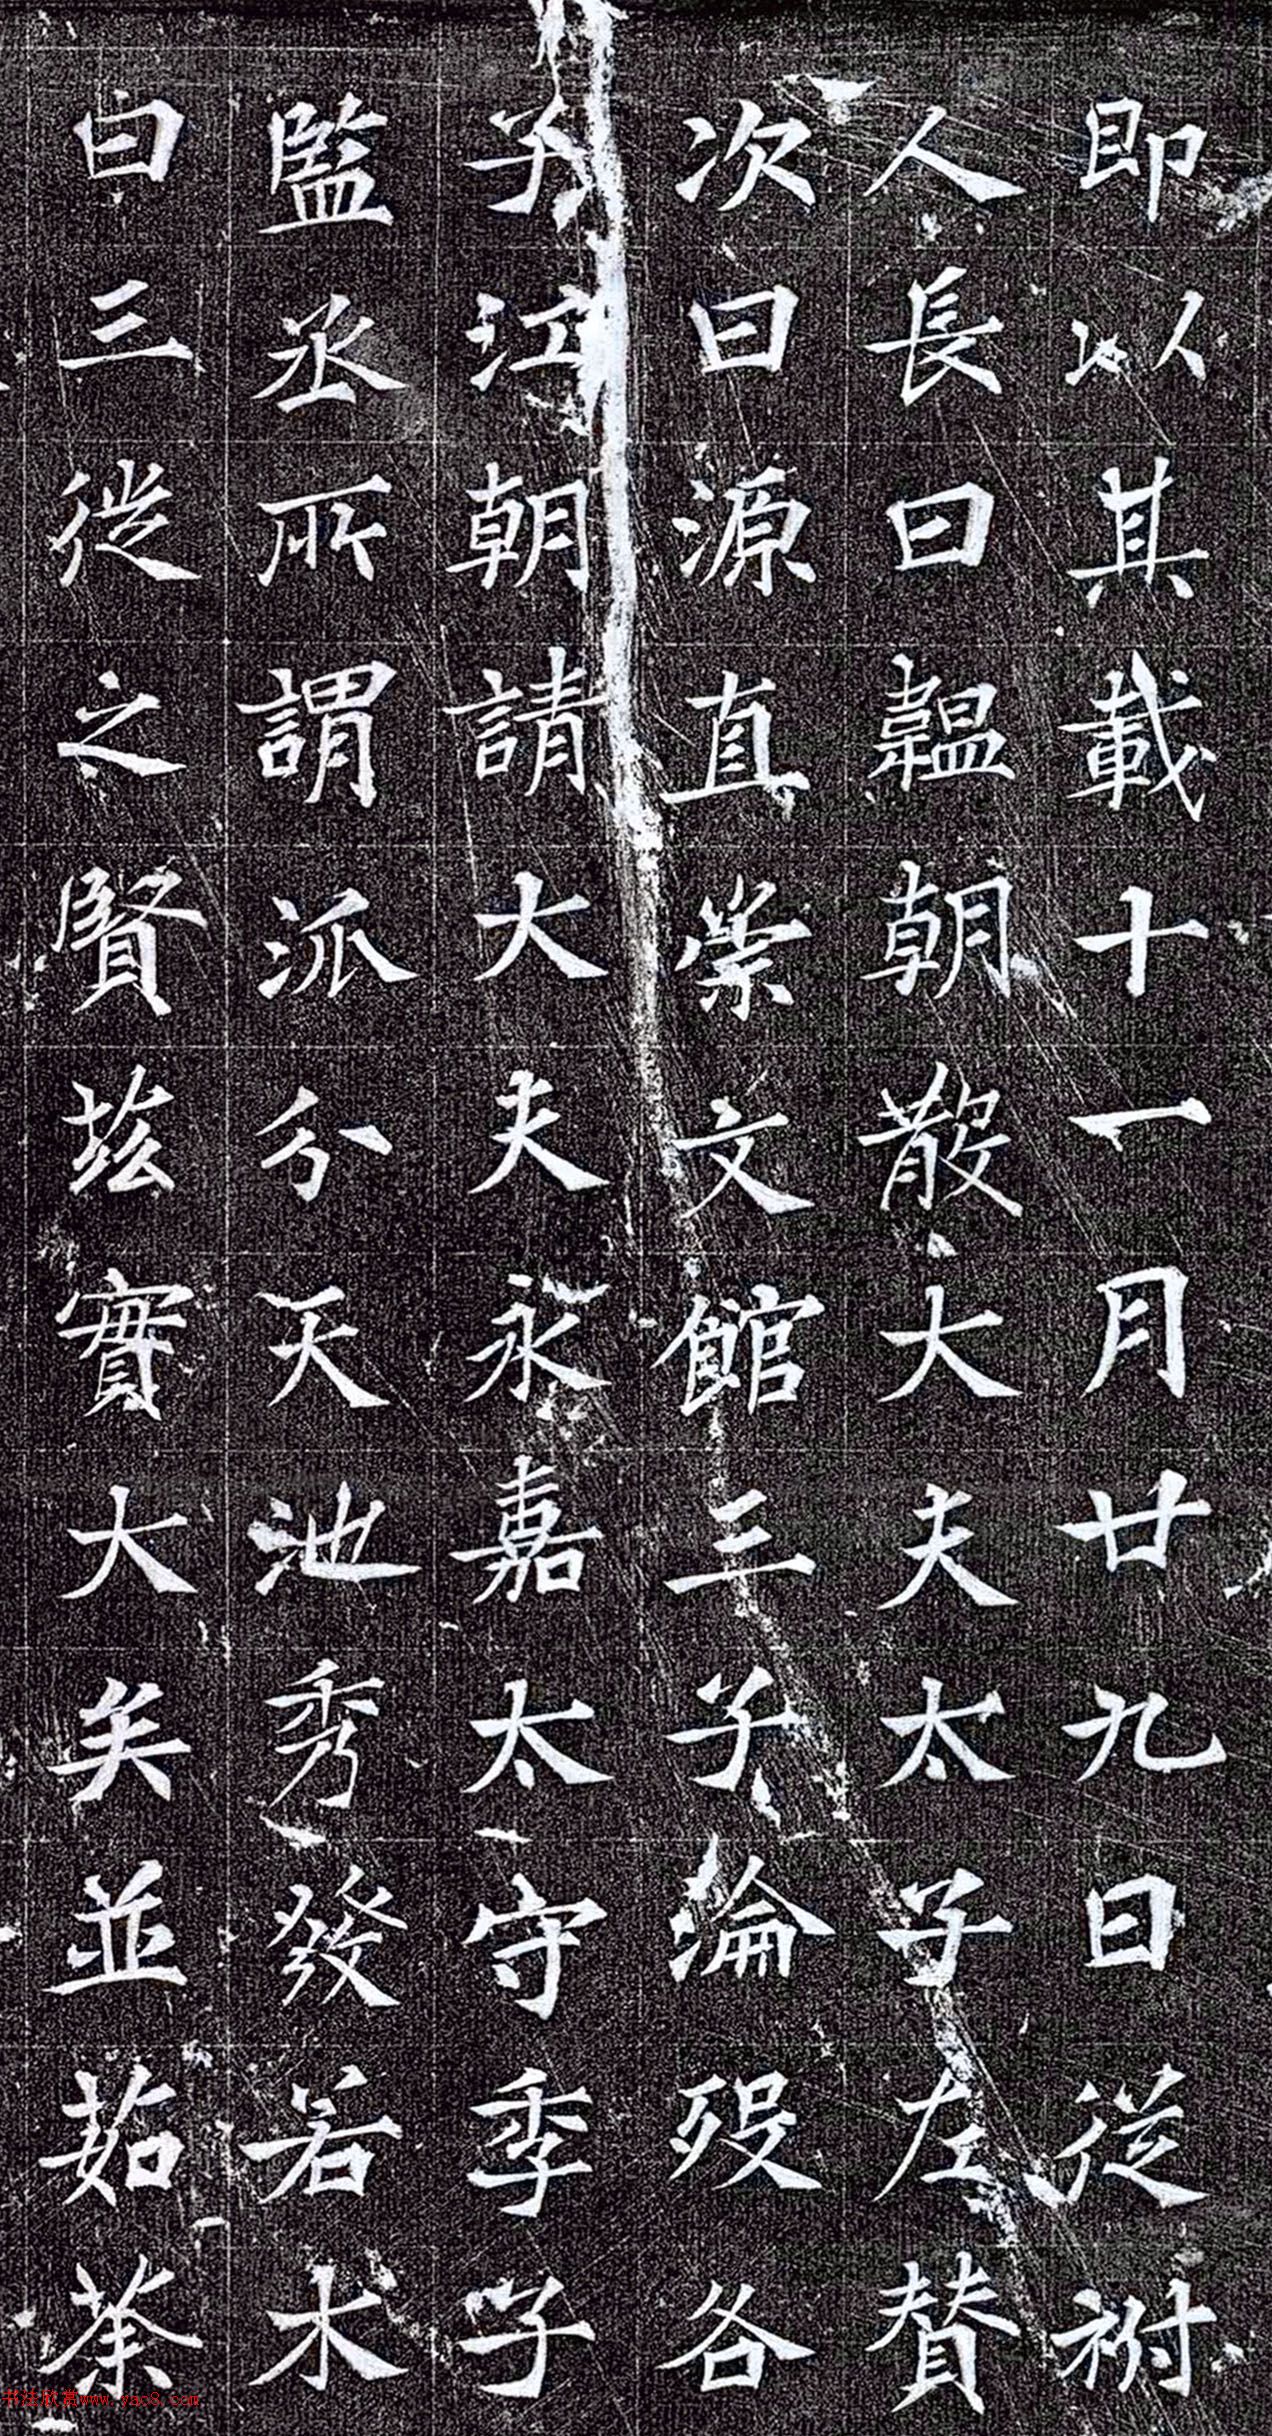 即以其載十一月廿九日従祔
人長曰韞朝散大夫太子左賛
次曰源直崇文館三子淪歿各
子江朝請大夫永嘉太守季子
監丞所謂派分天池秀發若木
白三從之賢茲實大矣並茹荼
书法欣赏www.yac8.com